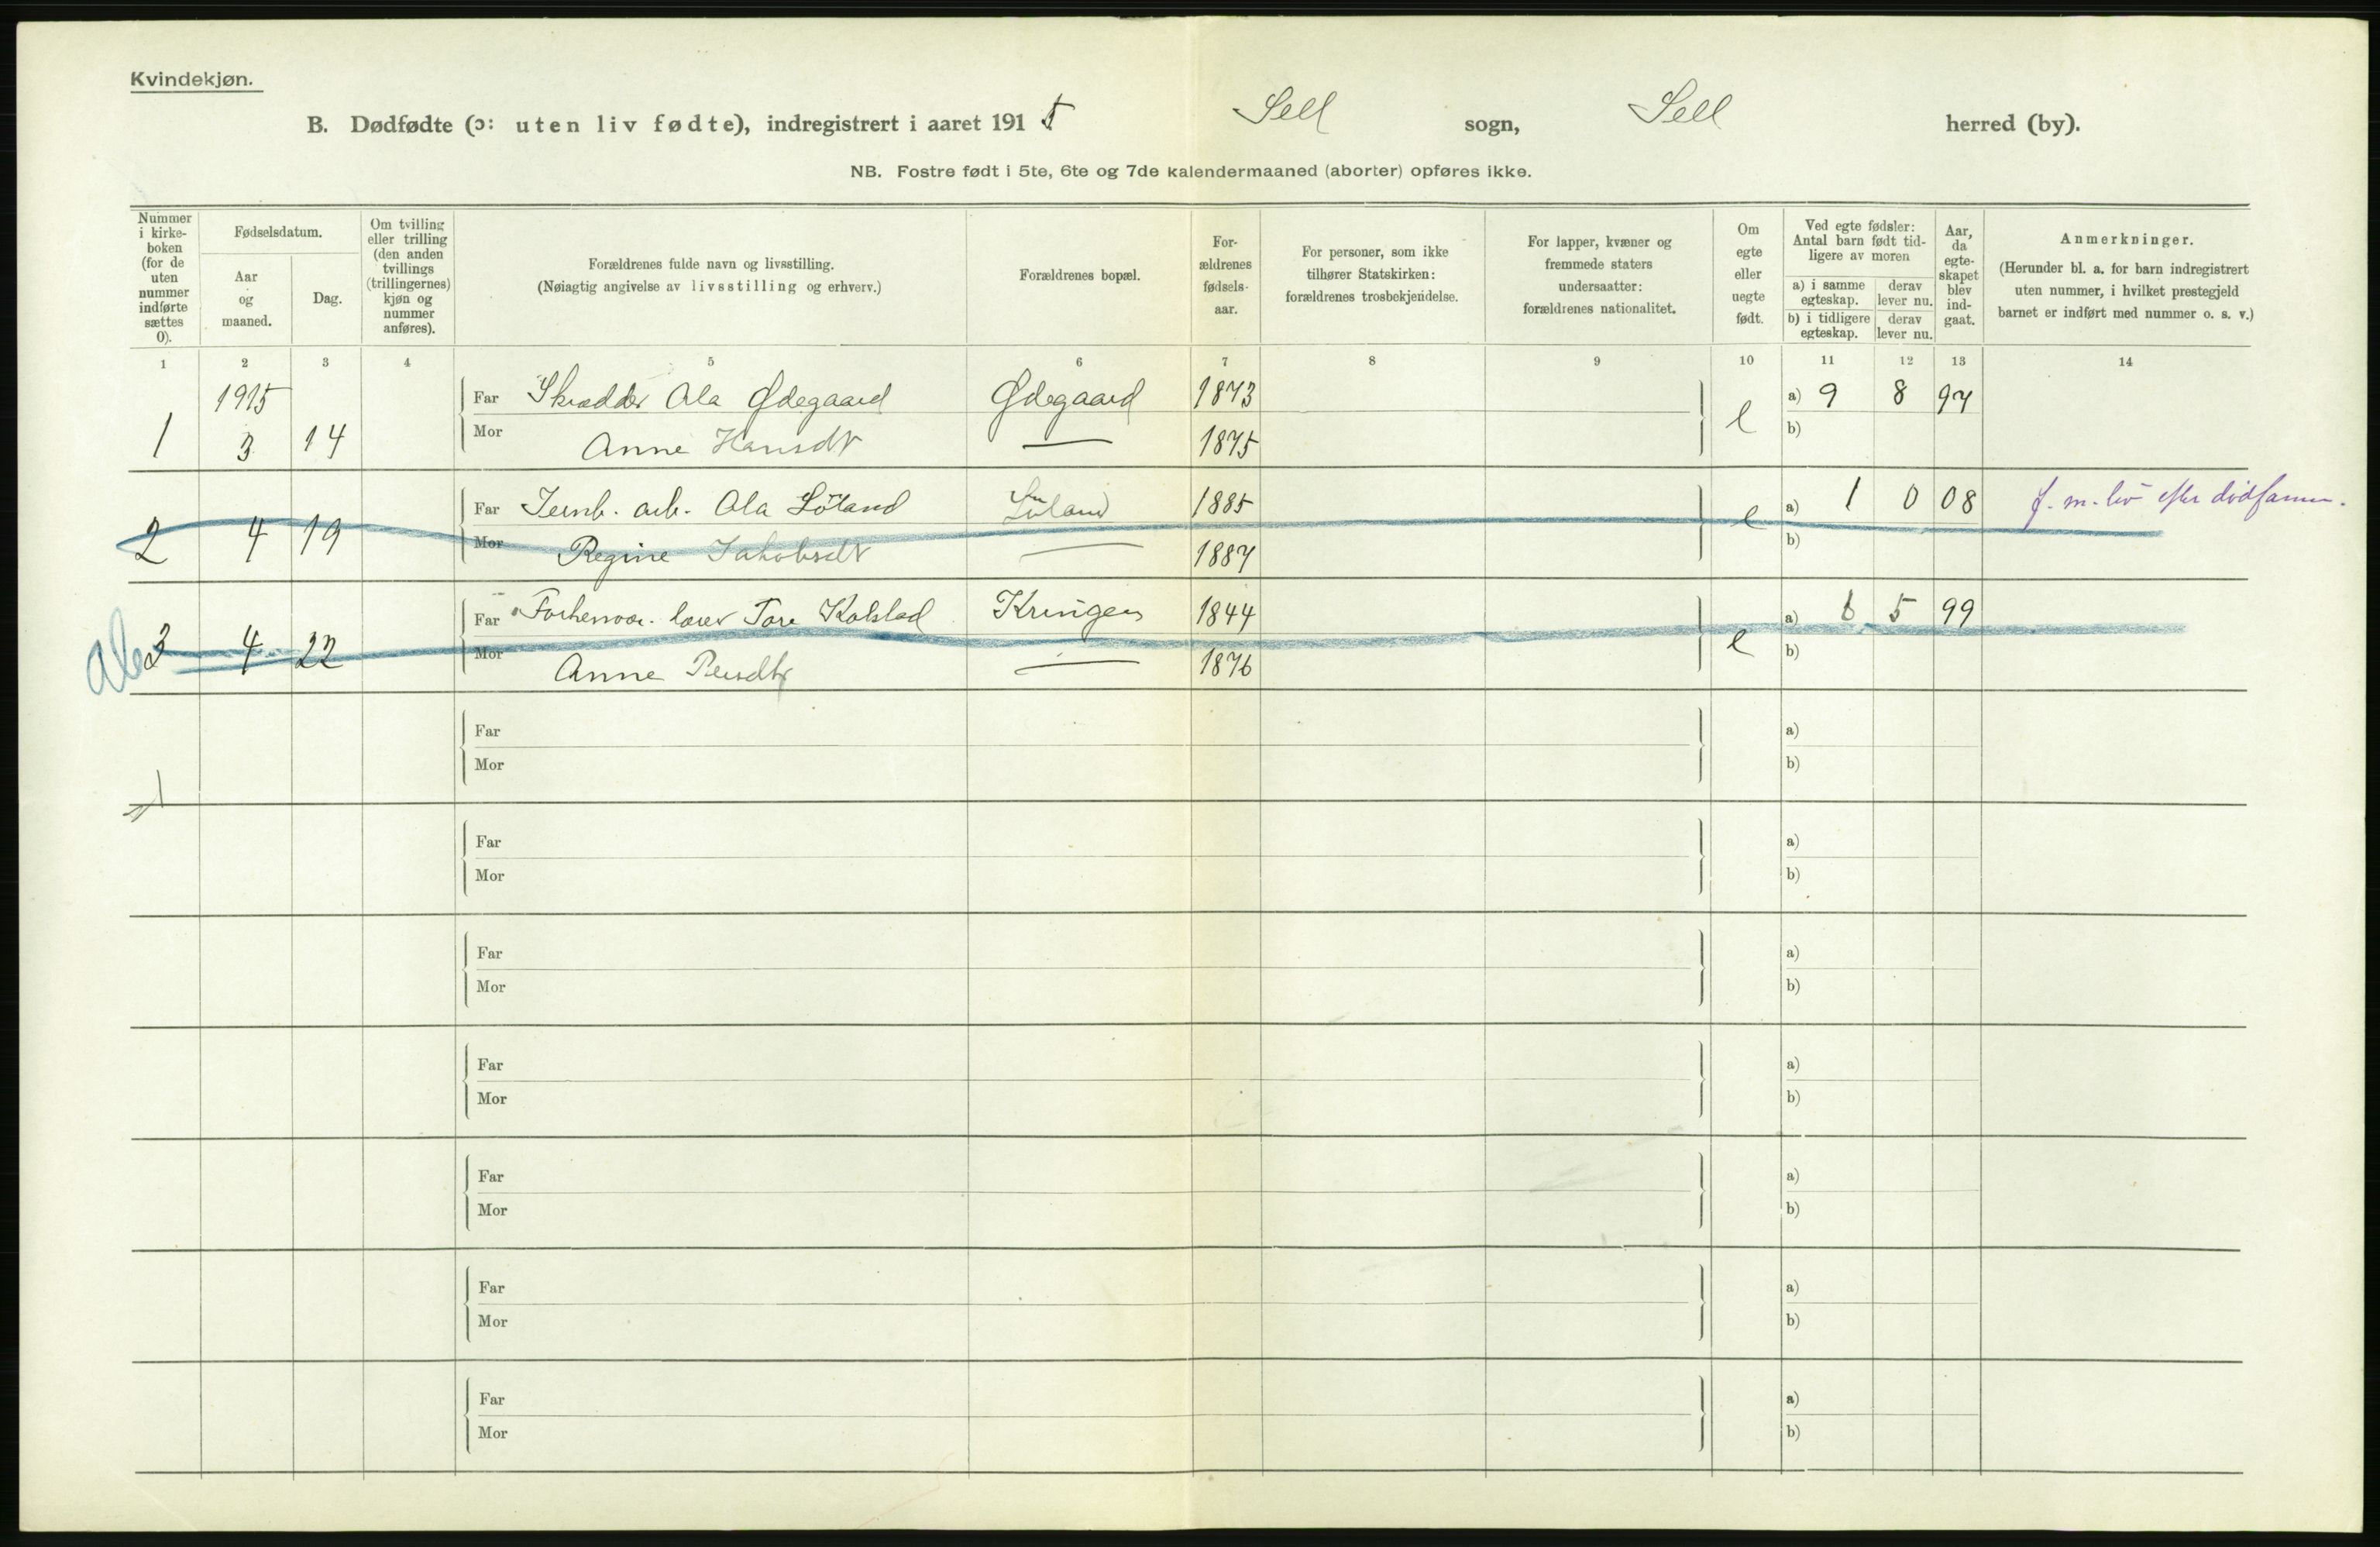 Kvindekjøn.
B. Dødfødte (ɔ: uten liv fødte), indregistrert i aaret 1915 Sell sogn, Sell herred (by).
NB. Fostre født i 5te, 6te og 7de kalendermaaned (aborter) opføres ikke.
Nummer i kirke-boken (for de uten nummer indførte sættes 0).
Fødselsdatum.
Aar og maaned.
Dag.
Om tvilling eller trilling (den anden tvillings (trillingernes) kjøn og nummer anføres).
Forældrenes fulde navn og livsstilling.
(Nøiagtig angivelse av livsstilling og erhverv.)
Forældrenes bopæl.
For-ældrenes fødsels-aar.
For personer, som ikke tilhører Statskirken: forældrenes trosbekjendelse.
For lapper, kvæner og fremmede staters undersaatter: forældrenes nationalitet.
Om egte eller uegte født.
Ved egte fødsler: Antal barn født tid-ligere av moren
a) i samme egteskap.
derav lever nu.
b) i tidligere egteskap.
derav lever nu.
Aar, da egte-skapet blev ind-gaat.
Anmerkninger.
(Herunder bl. a. for barn indregistrert uten nummer, i hvilket prestegjeld barnet er indført med nummer o. s. v.)
1 2 3 4 5 6 7 8 9 10 11 12 13 14
1915 Far Skrædder Ola Ødegaard Ødegaard 1873 a) 9 8 97
1 3 14 Mor Anne Hansdt — 1875 e b)
Far Jernb. arb. Ola Löland Löland 1885 a) 1 0 08 f. m. liv efter dødsanm.
2 4 19 Mor Regine Jakobsdt — 1887 e b)
Far Forhenvær. lærer Tore Kolstad Kringen 1844 a) 6 5 99
Ab 3 4 22 Mor Anne Persdtr — 1876 e b)
Far a)
Mor b)
1
Far a)
Mor b)
Far a)
Mor b)
Far a)
Mor b)
Far a)
Mor b)
Far a)
Mor b)
Far a)
Mor b)